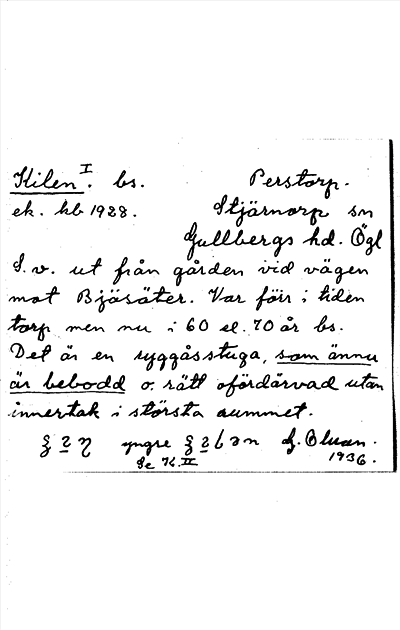 Kilen I. bs. Perstorp.
ek. kb 1928. Stjärnorp sn
Gullbergs hd. Ögl
S.v. ut från gården vid vägen
mot Bjäsäter. Var förr i tiden
torp men nu i 60 el. 70 år bs.
Det är en ryggåsstuga, som ännu
är bebodd o. rätt ofördärvad utan
innertak i största rummet.
yngre
Se K. II 1936.